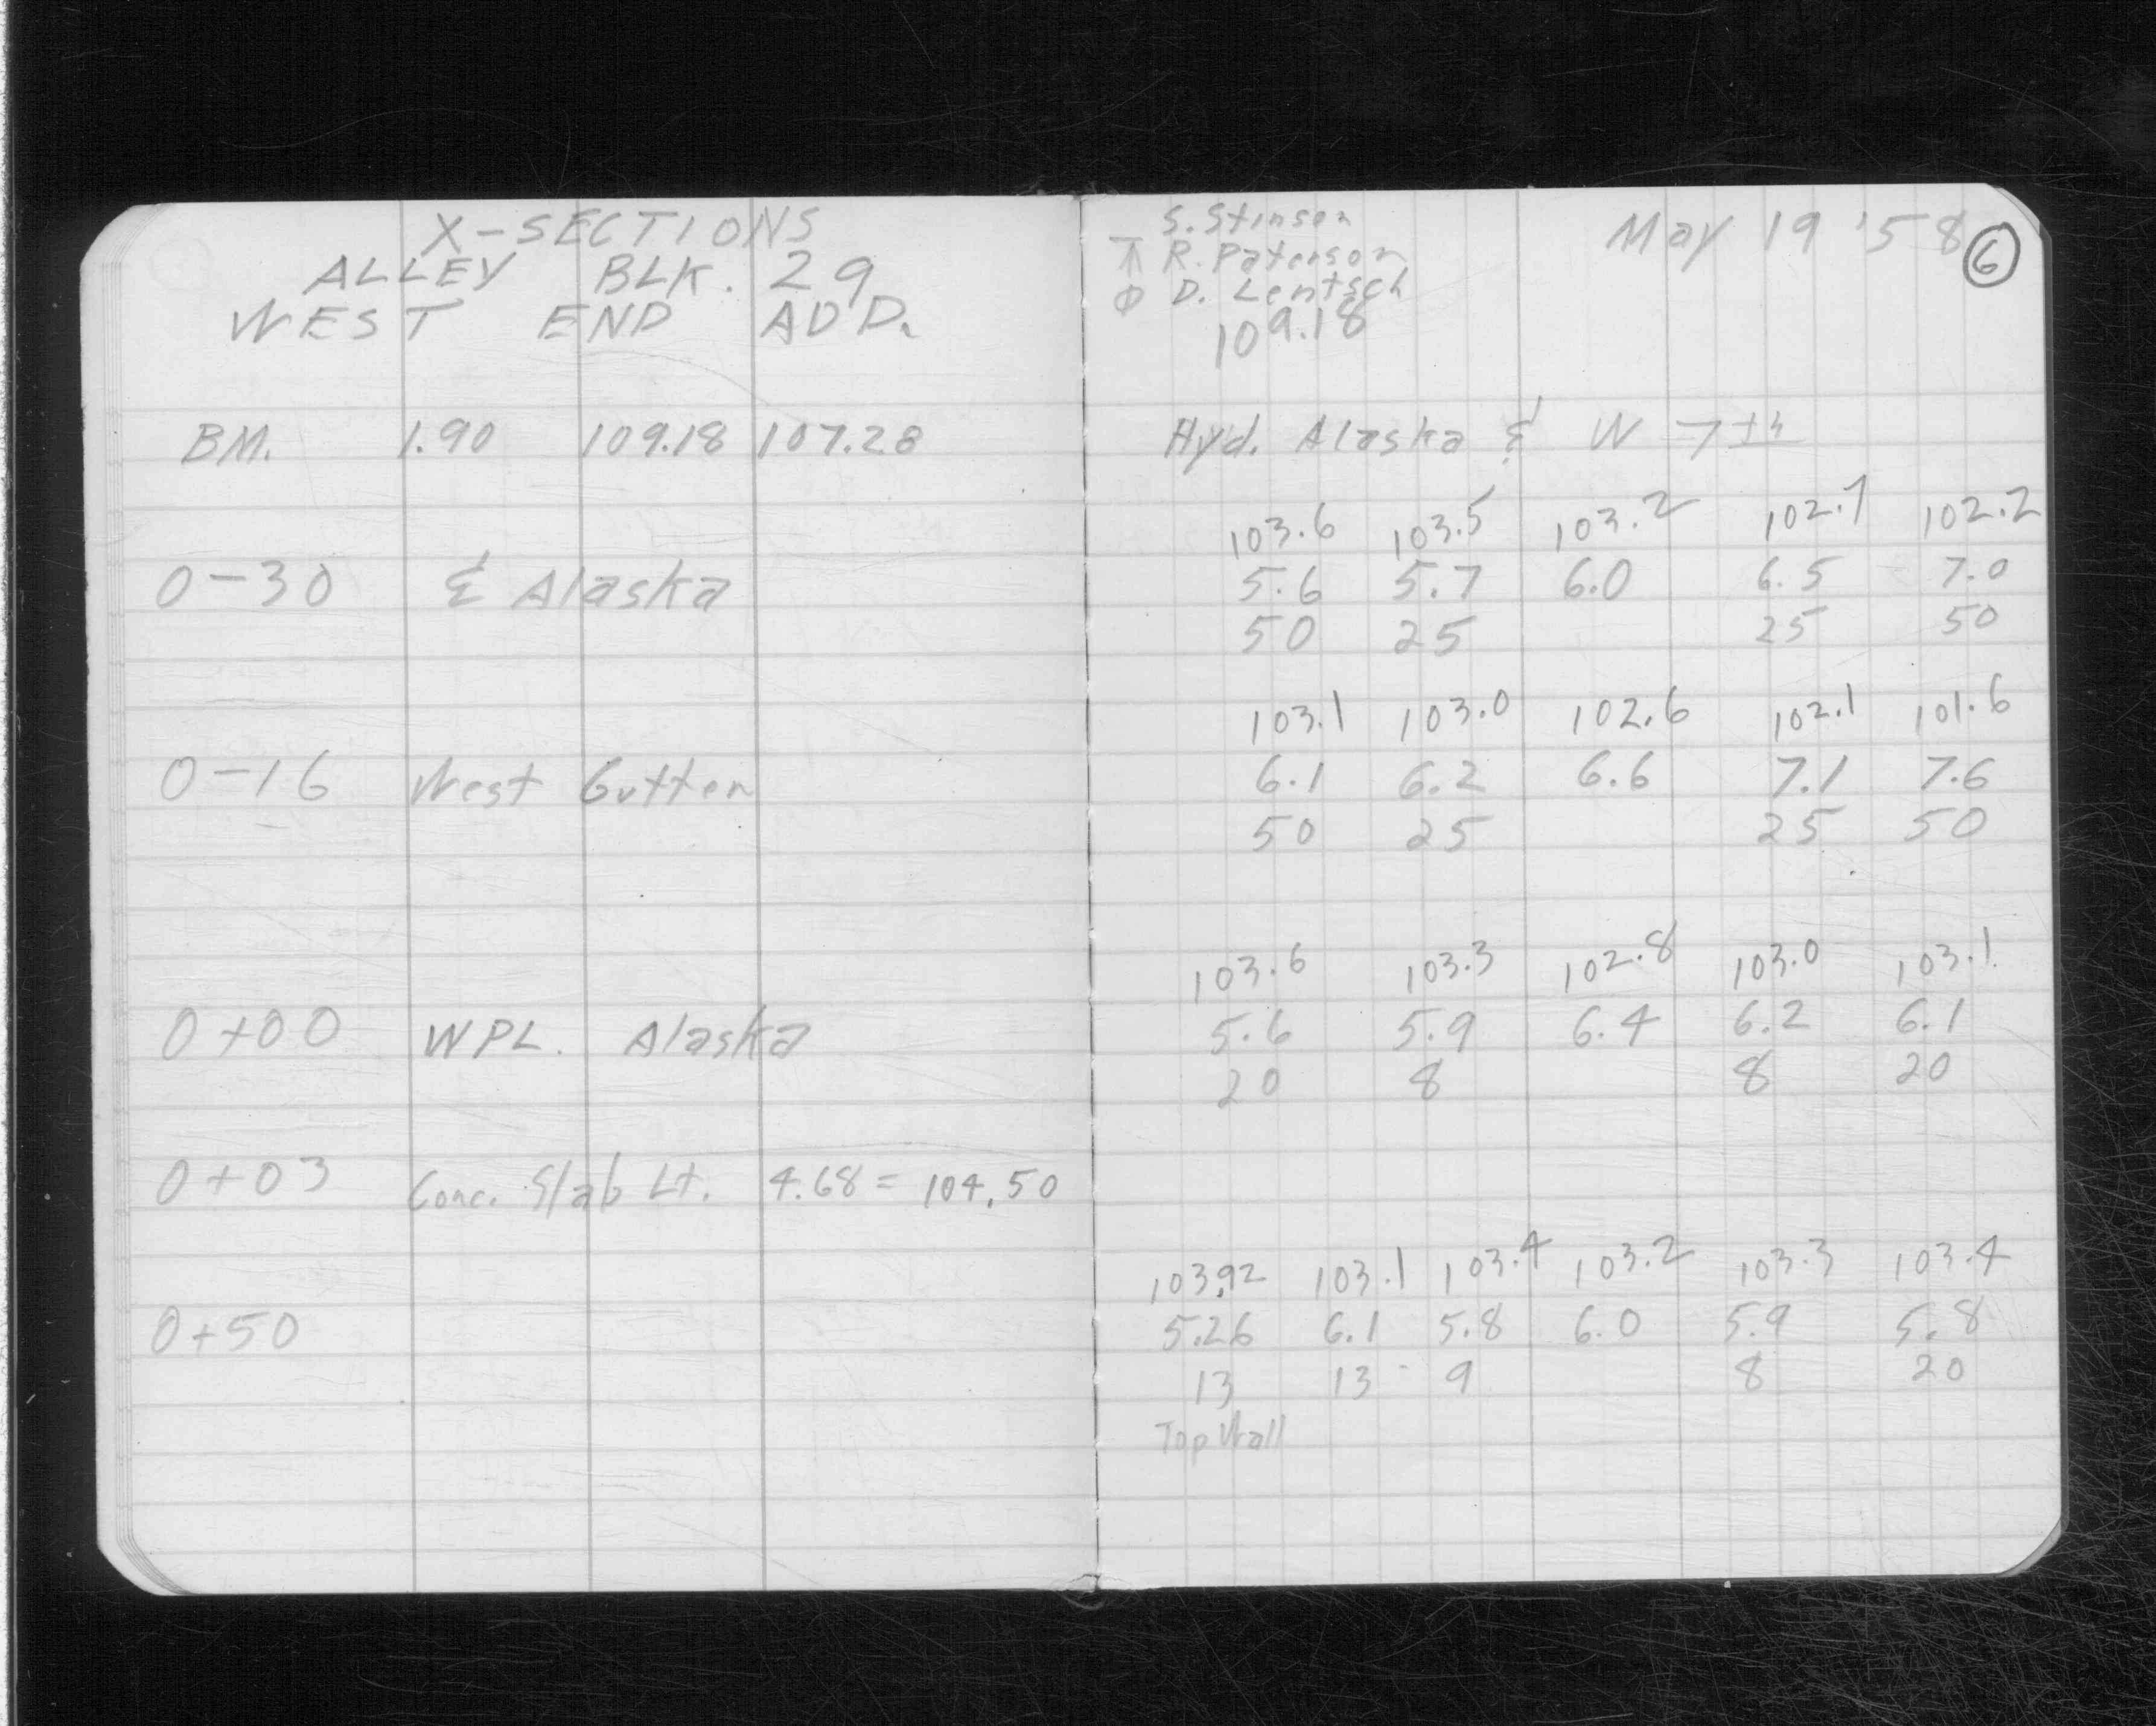 X-SECTIONS
ALLEY BLK. 29
WEST END ADD.
BM. 1.90 109.18 107.28
0-30 ℄ Alaska
0-16 West Gutter
0+00 WPL. Alaska
0+03 Conc. Slab Lt. 4.68 = 104.50
0+50
S. Stinson
⊼ R. Paterson
Φ D. Lentsch
109.18
May 19 '58
6
Hyd. Alaska & W 7th
103.6 103.5 103.2 102.7 102.2
5.6 5.7 6.0 6.5 7.0
50 25 25 50
103.1 103.0 102.6 102.1 101.6
6.1 6.2 6.6 7.1 7.6
50 25 25 50
103.6 103.3 102.8 103.0 103.1
5.6 5.9 6.4 6.2 6.1
20 8 8 20
103.92 103.1 103.4 103.2 103.3 103.4
5.26 6.1 5.8 6.0 5.9 5.8
13 13 9 8 20
Top Wall